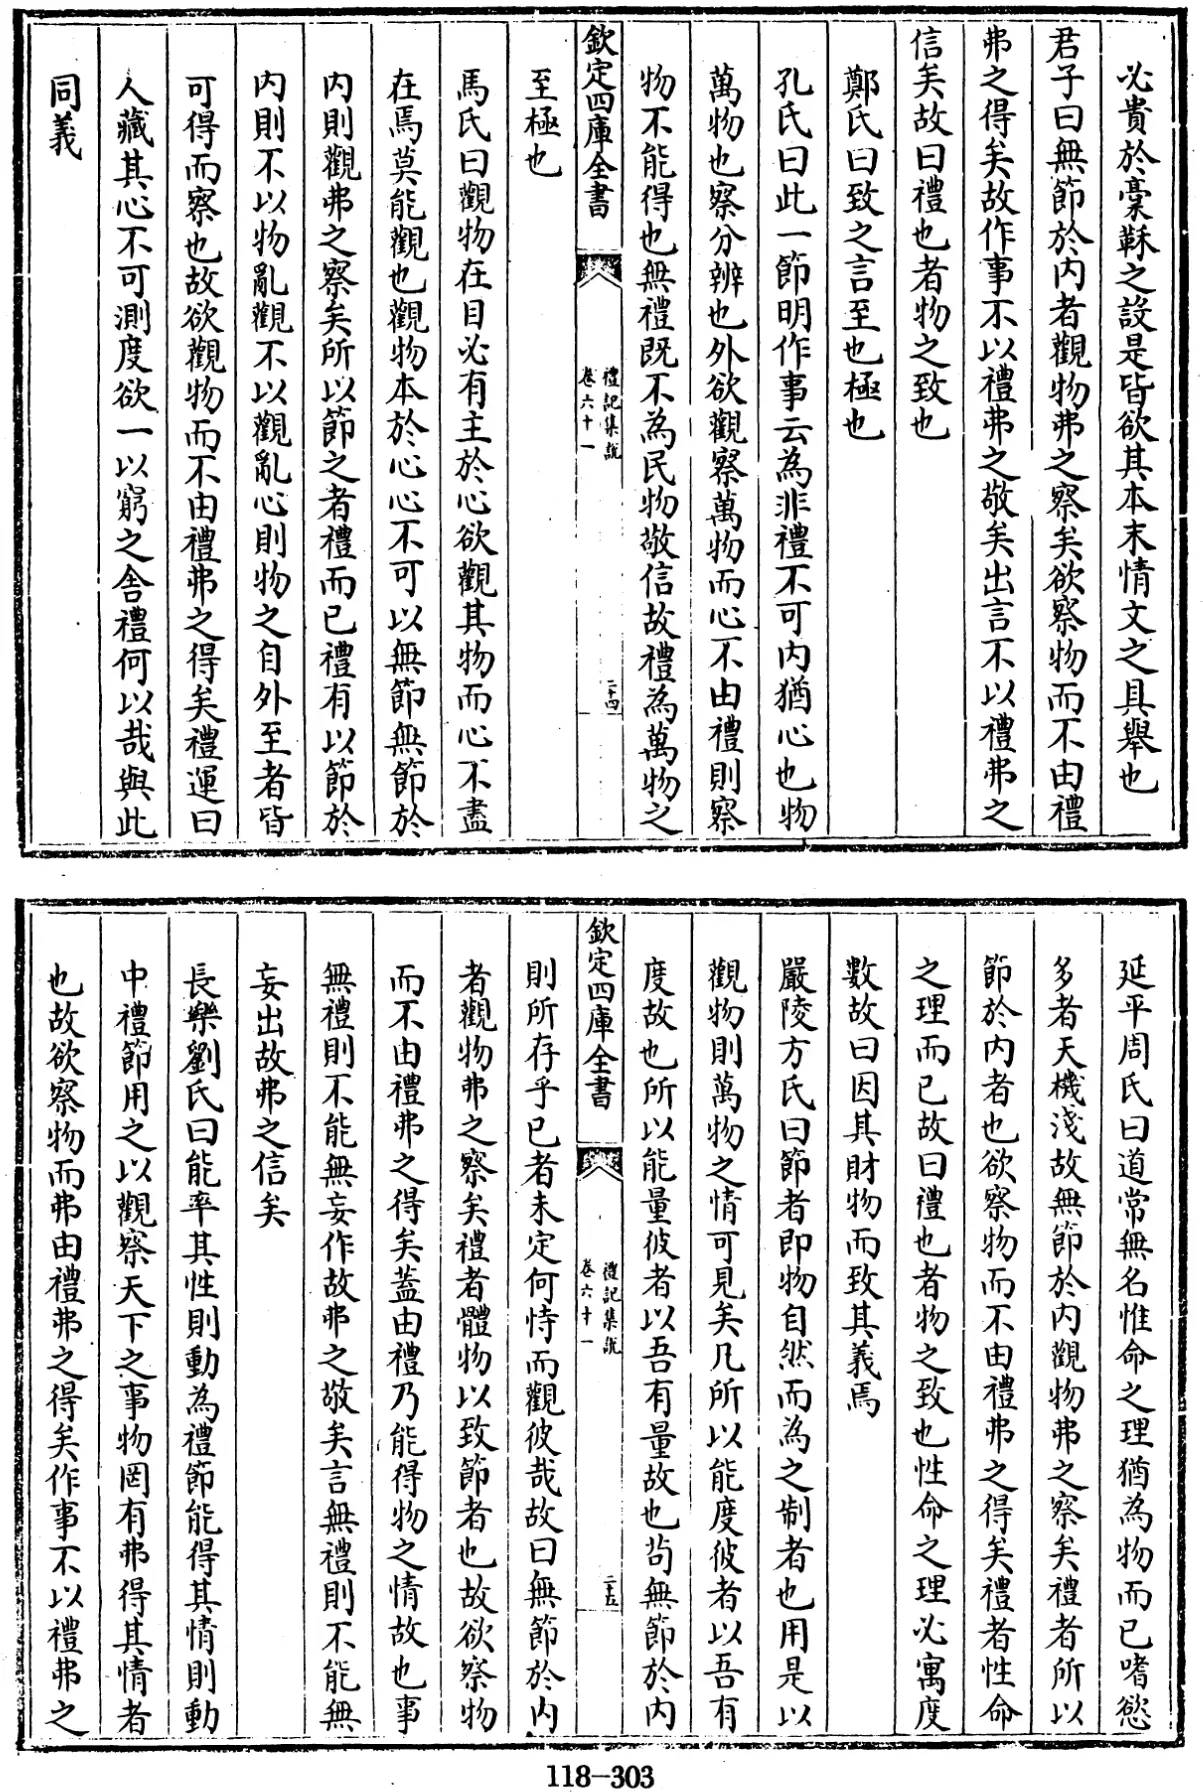 必貴於稾鞂之設是皆欲其本末情文之具舉也
君子曰無節於内者觀物弗之察矣欲察物而不由禮
弗之得矣故作事不以禮弗之敬矣出言不以禮弗之
信矣故曰禮也者物之致也
鄭氏曰致之言至也極也
孔氏曰此一節明作事云為非禮不可内猶心也物
萬物也察分辨也外欲觀察萬物而心不由禮則察
物不能得也無禮既不為民物敬信故禮為萬物之
欽定四庫全書
禮記集說
卷六十一
二十四
至極也
馬氏曰觀物在目必有主於心欲觀其物而心不盡
在焉莫能觀也觀物本於心心不可以無節無節於
内則觀弗之察矣所以節之者禮而已禮有以節於
内則不以物亂觀不以觀亂心則物之自外至者皆
可得而察也故欲觀物而不由禮弗之得矣禮運曰
人藏其心不可測度欲一以窮之舍禮何以哉與此
同義
延平周氏曰道常無名惟命之理猶為物而已嗜慾
多者天機淺故無節於内觀物弗之察矣禮者所以
節於内者也欲察物而不由禮弗之得矣禮者性命
之理而已故曰禮也者物之致也性命之理必寓度
數故曰因其財物而致其義焉
嚴陵方氏曰節者即物自然而為之制者也用是以
觀物則萬物之情可見矣凡所以能度彼者以吾有
度故也所以能量彼者以吾有量故也茍無節於内
欽定四庫全書
禮記集說
卷六十一
二十五
則所存乎已者未定何恃而觀彼哉故曰無節於内
者觀物弗之察矣禮者體物以致節者也故欲察物
而不由禮弗之得矣葢由禮乃能得物之情故也事
無禮則不能無妄作故弗之敬矣言無禮則不能無
妄出故弗之信矣
長樂劉氏曰能率其性則動為禮節能得其情則動
中禮節用之以觀察天下之事物罔有弗得其情者
也故欲察物而弗由禮弗之得矣作事不以禮弗之
118-303